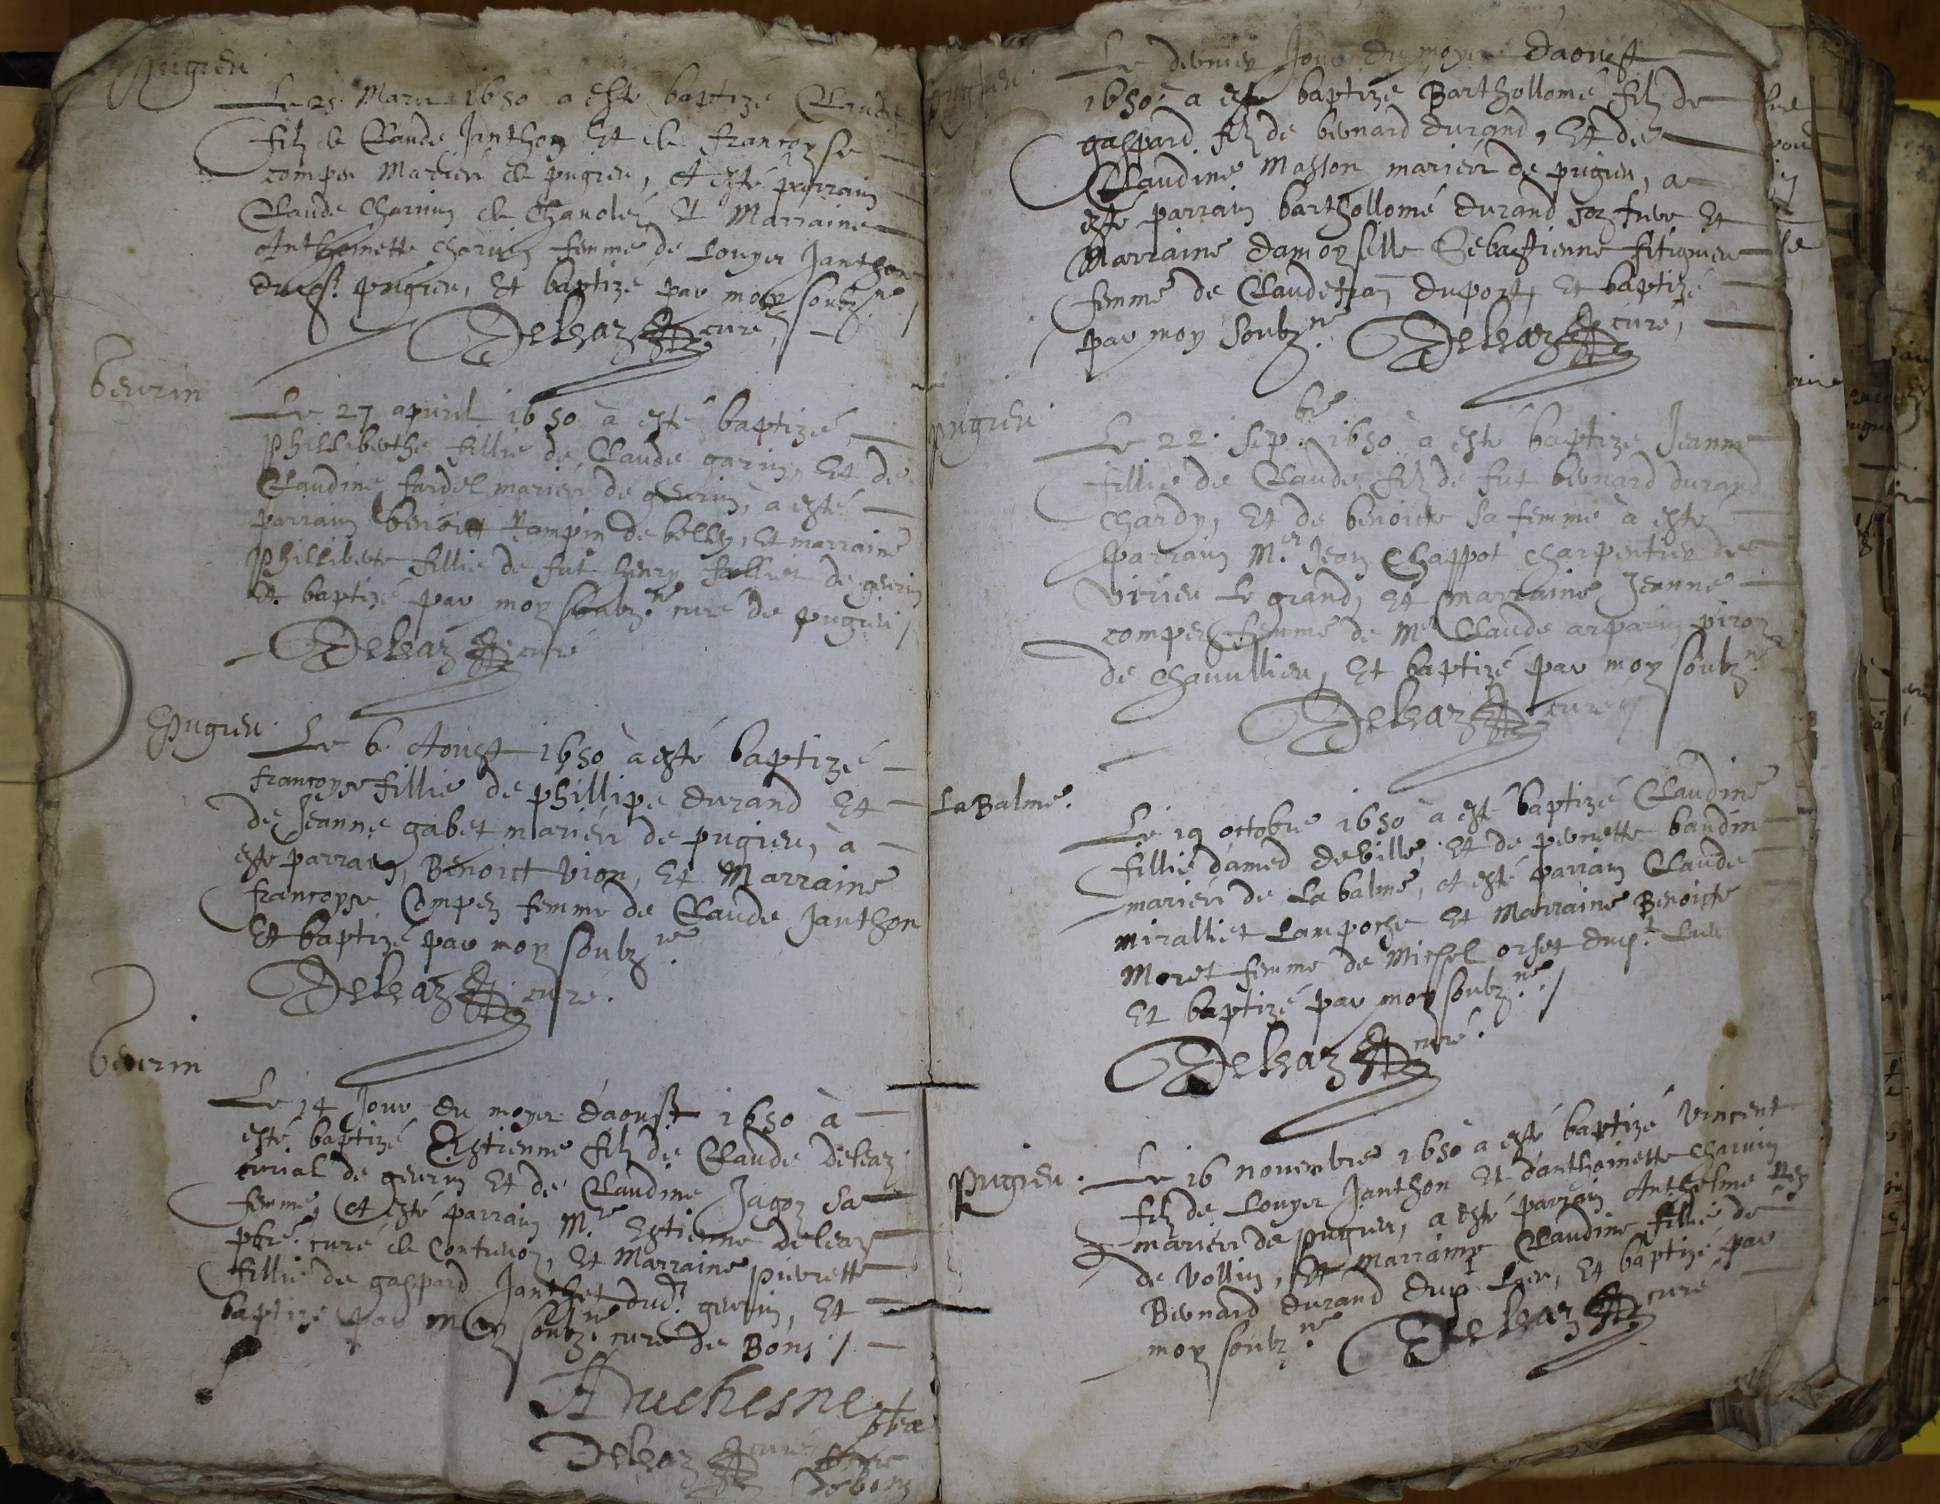 Pugieu
Le 25 Mars 1650 a esté baptizé Claude
filz de Claude Janthon Et de françoyse
compeu Mariéri de pugieu, A esté parrain
Claude Charuin de Chanoley Et Marraine
Anthoinette charuin femme de Louys Janthon
dud.t pugieu, Et baptizé par moy soubz.né /
Deleaz curé
Geurin
Le 27 apuril 1650 à esté baptizé
Philleberthe fillie de Claude garin, Et de
Claudine fardel mariéri de geurin, à esté
parrain benoict Rampin de belley, Et marraine
Phillibete fillie de fut henry de geurin
Et baptizé par moy soubz.né curé de pugieu /
Deleaz curé
Pugieu
Le 6. Aoust 1650 à esté baptizé
françoyse fillie de phillipe durand Et
de Jeanne gabet mariéri de pugieu, à
esté parrain, Benoict Vion, Et Marraine
françoyse Compez femme de Claude Janthon
Et baptizé par moy soubz.né
Deleaz curé.
Geurin
Le 14 Jour du moys d'aoust 1650 à
esté baptizé Estienne filz de Claude deleaz
curial de geurin Et de Claudine Jagoz sa
femme, A esté parrain M.re Estienne deleaz
pbre. curé de Contreuoz, Et Marraine pierrette
fillie de gaspard Janthet dud.t geurin, Et
baptizé par moy soubz.né curé de Bons /
Duchesne pbre
Deleaz curé
de bons
Pugieu
Le dernier Jour du moys d'aoust
1650 a esté baptizé Barthollomé filz de
gaspard filz de bernard durand, Et de
Claudine Masson mariéri de pugieu, a
esté parrain barthollomé durand son frere Et
Marraine damoyselle Sebastienne fitignieu
femme de Claudefran duport, Et baptizé
par moy soubz.né Deleaz curé,
pugieu
Le 22. sep.bre 1650 à esté baptizé Jeanne
fillie de Claude filz de fut bernard durand
chardy, Et de benoicte sa femme à esté
parrain M.e Jean Chappot charpentier de
Virieu le grand, Et marraine Jeanne
compez femme de M.e Claude arparin piroz
de chauillieu, Et baptizé par moy soubz.né
Deleaz curé
La Balme.
Le 19 octobre 1650 à esté baptizé Claudine
fillie damed deville, Et de pernette baudin
mariéri de La balme, A esté parrain Claude
miralliet Lamporze Et Marraine Benoiste
Moret femme de Michel orset dud.t Lieu
Et baptizé par moy soubz.né /
Deleaz curé.
Pugieu.
Le 16 nouembre 1650 à esté baptizé Vincent
filz de Louys Janthon Et d'anthoinette charuin
mariéri de pugieu, a esté parrain Anthelme Rey
de Vollin, Et Marraine Claudine fillie de
Bernard durand dud.t Lieu, Et baptizé par
moy soubz.né Deleaz curé